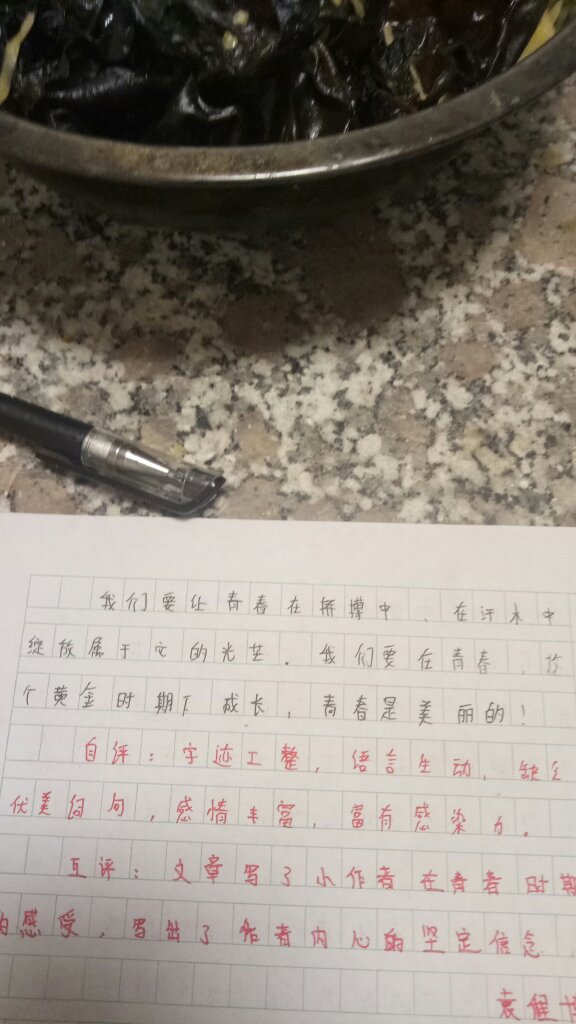 我们要让青春在拼搏中、在汗水中
绽放属于它的光芒。我们要在青春、这
个黄金时期下成长，青春是美丽的！
自评：字迹工整，语言生动，缺乏
优美句，感情丰富，富有感染力。
互评：文章写了小作者在青春时期
的感受，写出了作者内心的坚定信念
袁